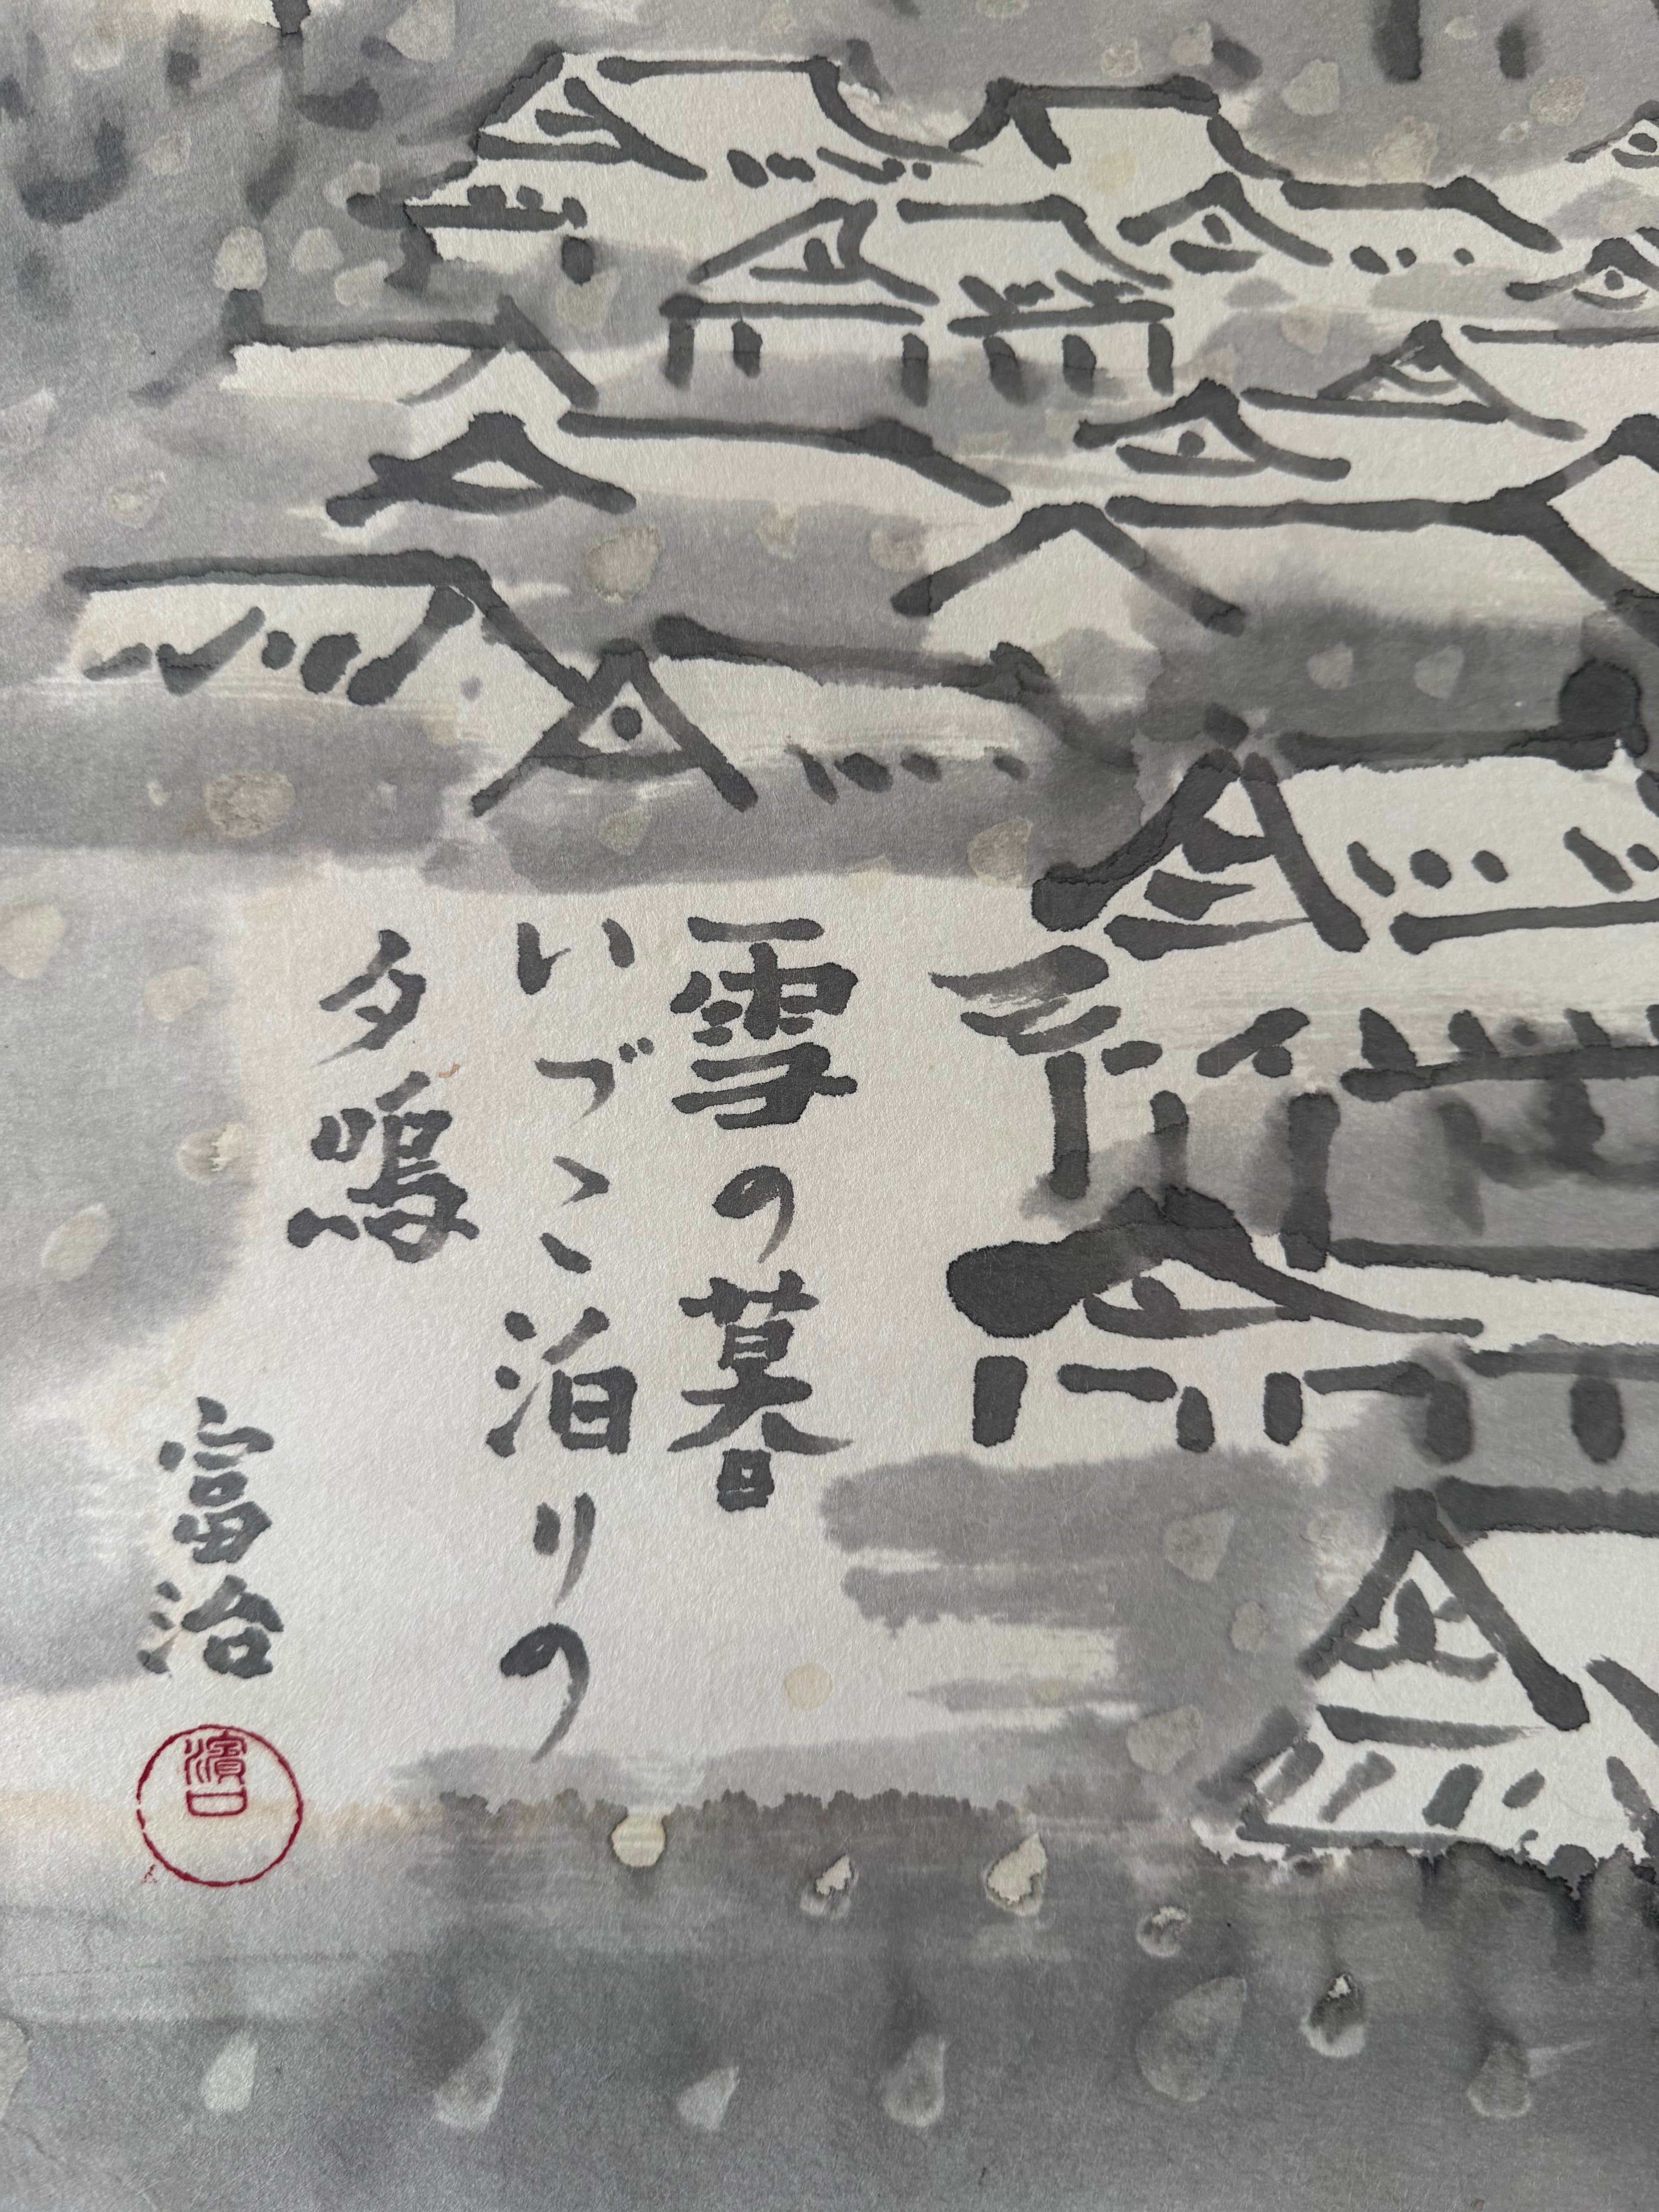 雪の暮
いづこ泊りの
夕鳴
富治
濱口